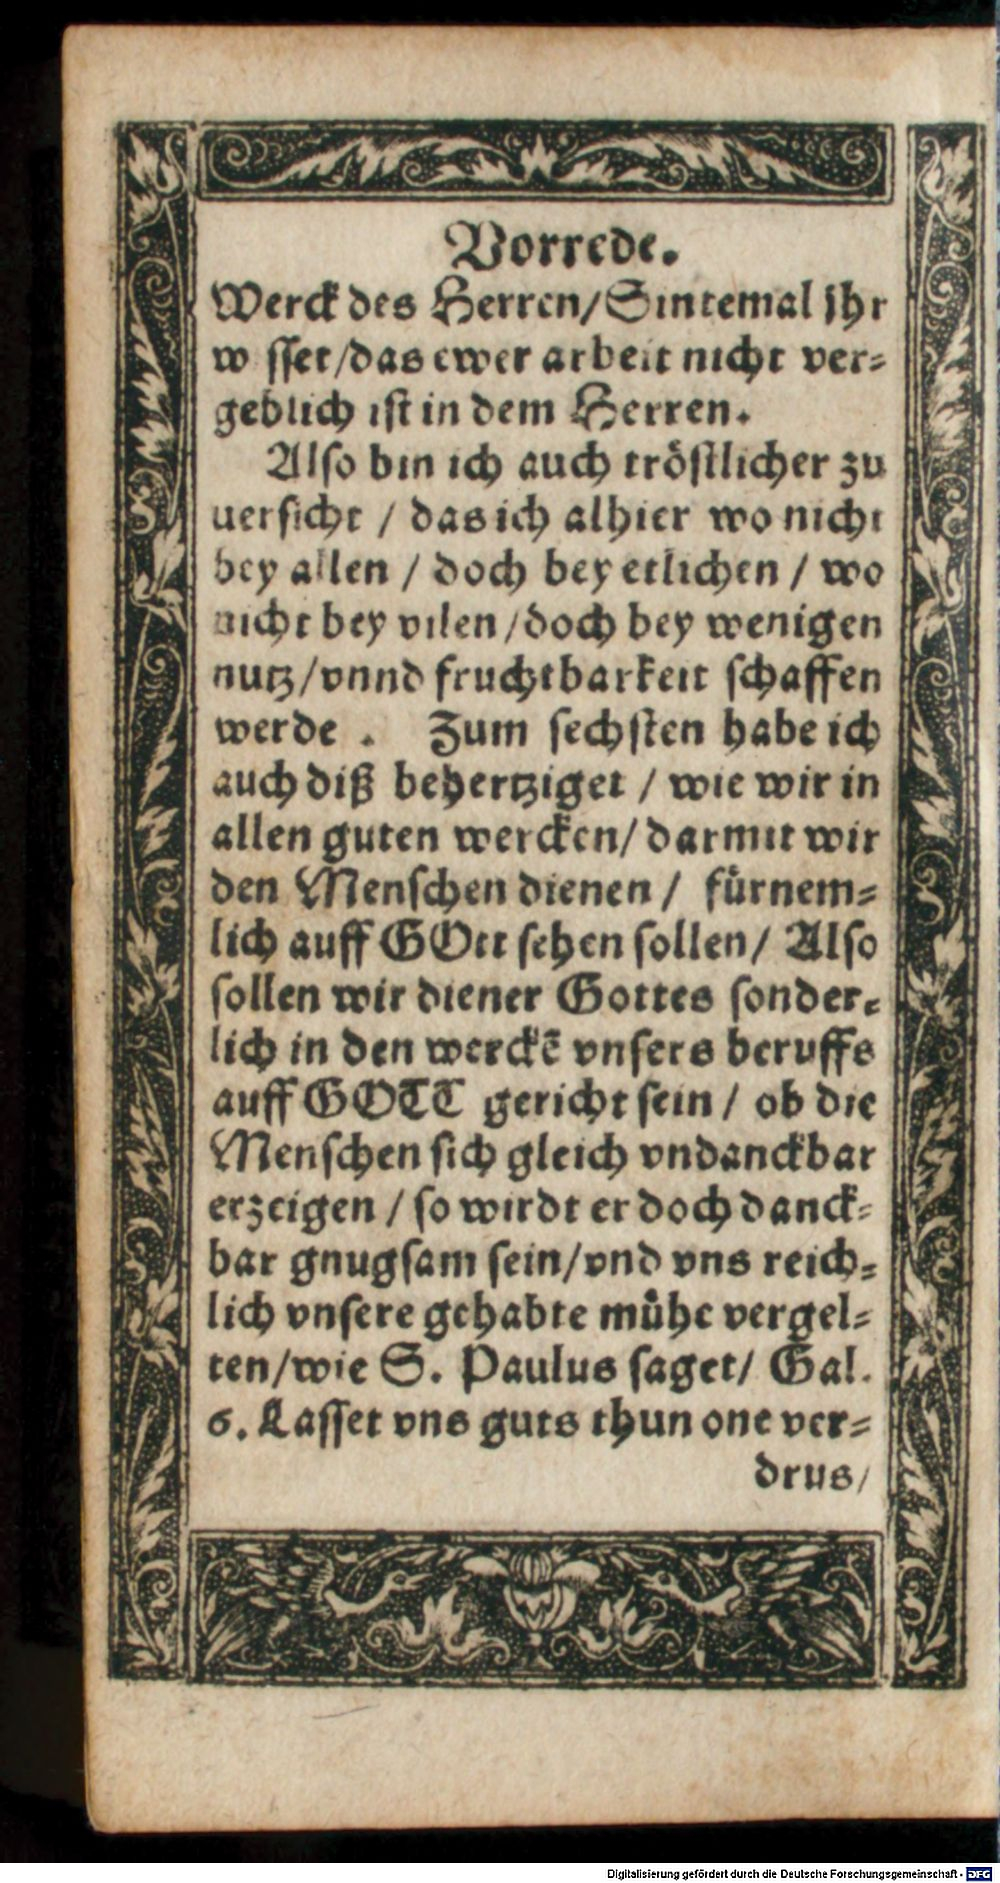 Vorrede.
Werck des Herren/Sintemal jhr
w sset/das ewer arbeit nicht ver⸗
geblich ist in dem Herren.
Also bin ich auch tröstlicher zu
uersicht / das ich alhier wo nicht
bey allen / doch bey etlichen / wo
nicht bey vilen/doch bey wenigen
nutz/vnnd fruchtbarkeit schaffen
werde . Zum sechsten habe ich
auch diß behertziget / wie wir in
allen guten wercken/darmit wir
den Menschen dienen / fürnem⸗
lich auff GOtt sehen sollen/ Also
sollen wir diener Gottes sonder⸗
lich in den werckē vnsers beruffs
auff GOTT gericht sein / ob die
Menschen sich gleich vndanckbar
erzeigen / so wirdt er doch danck⸗
bar gnugsam sein/vnd vns reich⸗
lich vnsere gehabte mühe vergel⸗
ten/wie S. Paulus saget/ Gal.
6. Lasset vns guts thun one ver⸗
drus/
Digitalisierung gefördert durch die Deutsche Forschungsgemeinschaft - DFG